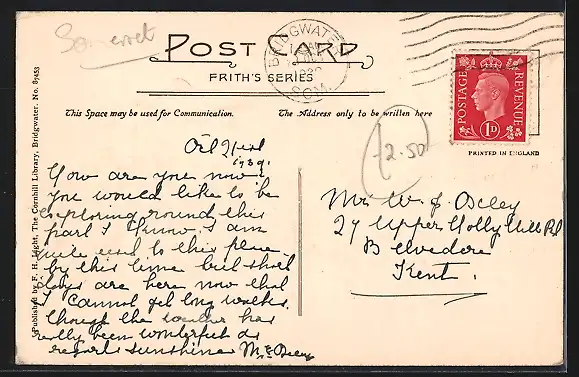 Somerset
POST CARD
FRITH'S SERIES
BRIDGWATER
SOM.
POSTAGE
REVENUE
1D
This Space may be used for Communication.
The Address only to be written here
PRINTED IN ENGLAND
12.50
Published by F. H. Light, The Cornhill Library, Bridgwater. No. 87453
1939.
How are you now
you would like to be
exploring round this
part I know, I am
quite used to this place
by this time but short
days are here now that
I cannot get long walks.
though the weather has
really been wonderful as
regards sunshine M. E. Oxley
Mrs W J Oxley
27 Upper Holly Hill Rd
Belvedere
Kent.